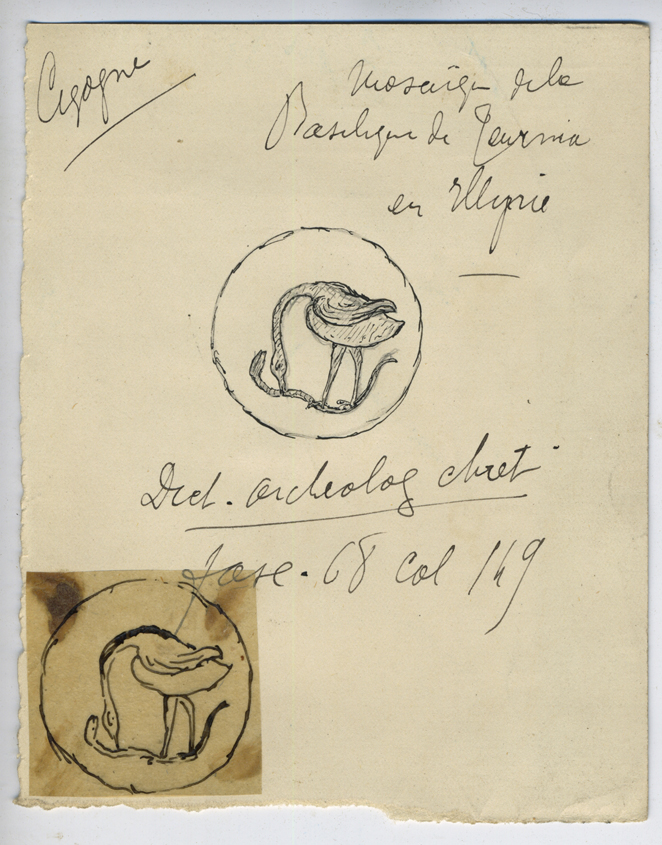 Cigogne
Mosaïque de la
Basilique de Teurnia
en Illyrie
Dict. archeolog chret.
fasc. 68 col 149